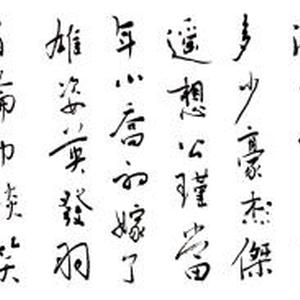 多少豪杰傑
遥想公瑾當
年小喬初嫁了
雄姿英發羽
扇綸巾談笑